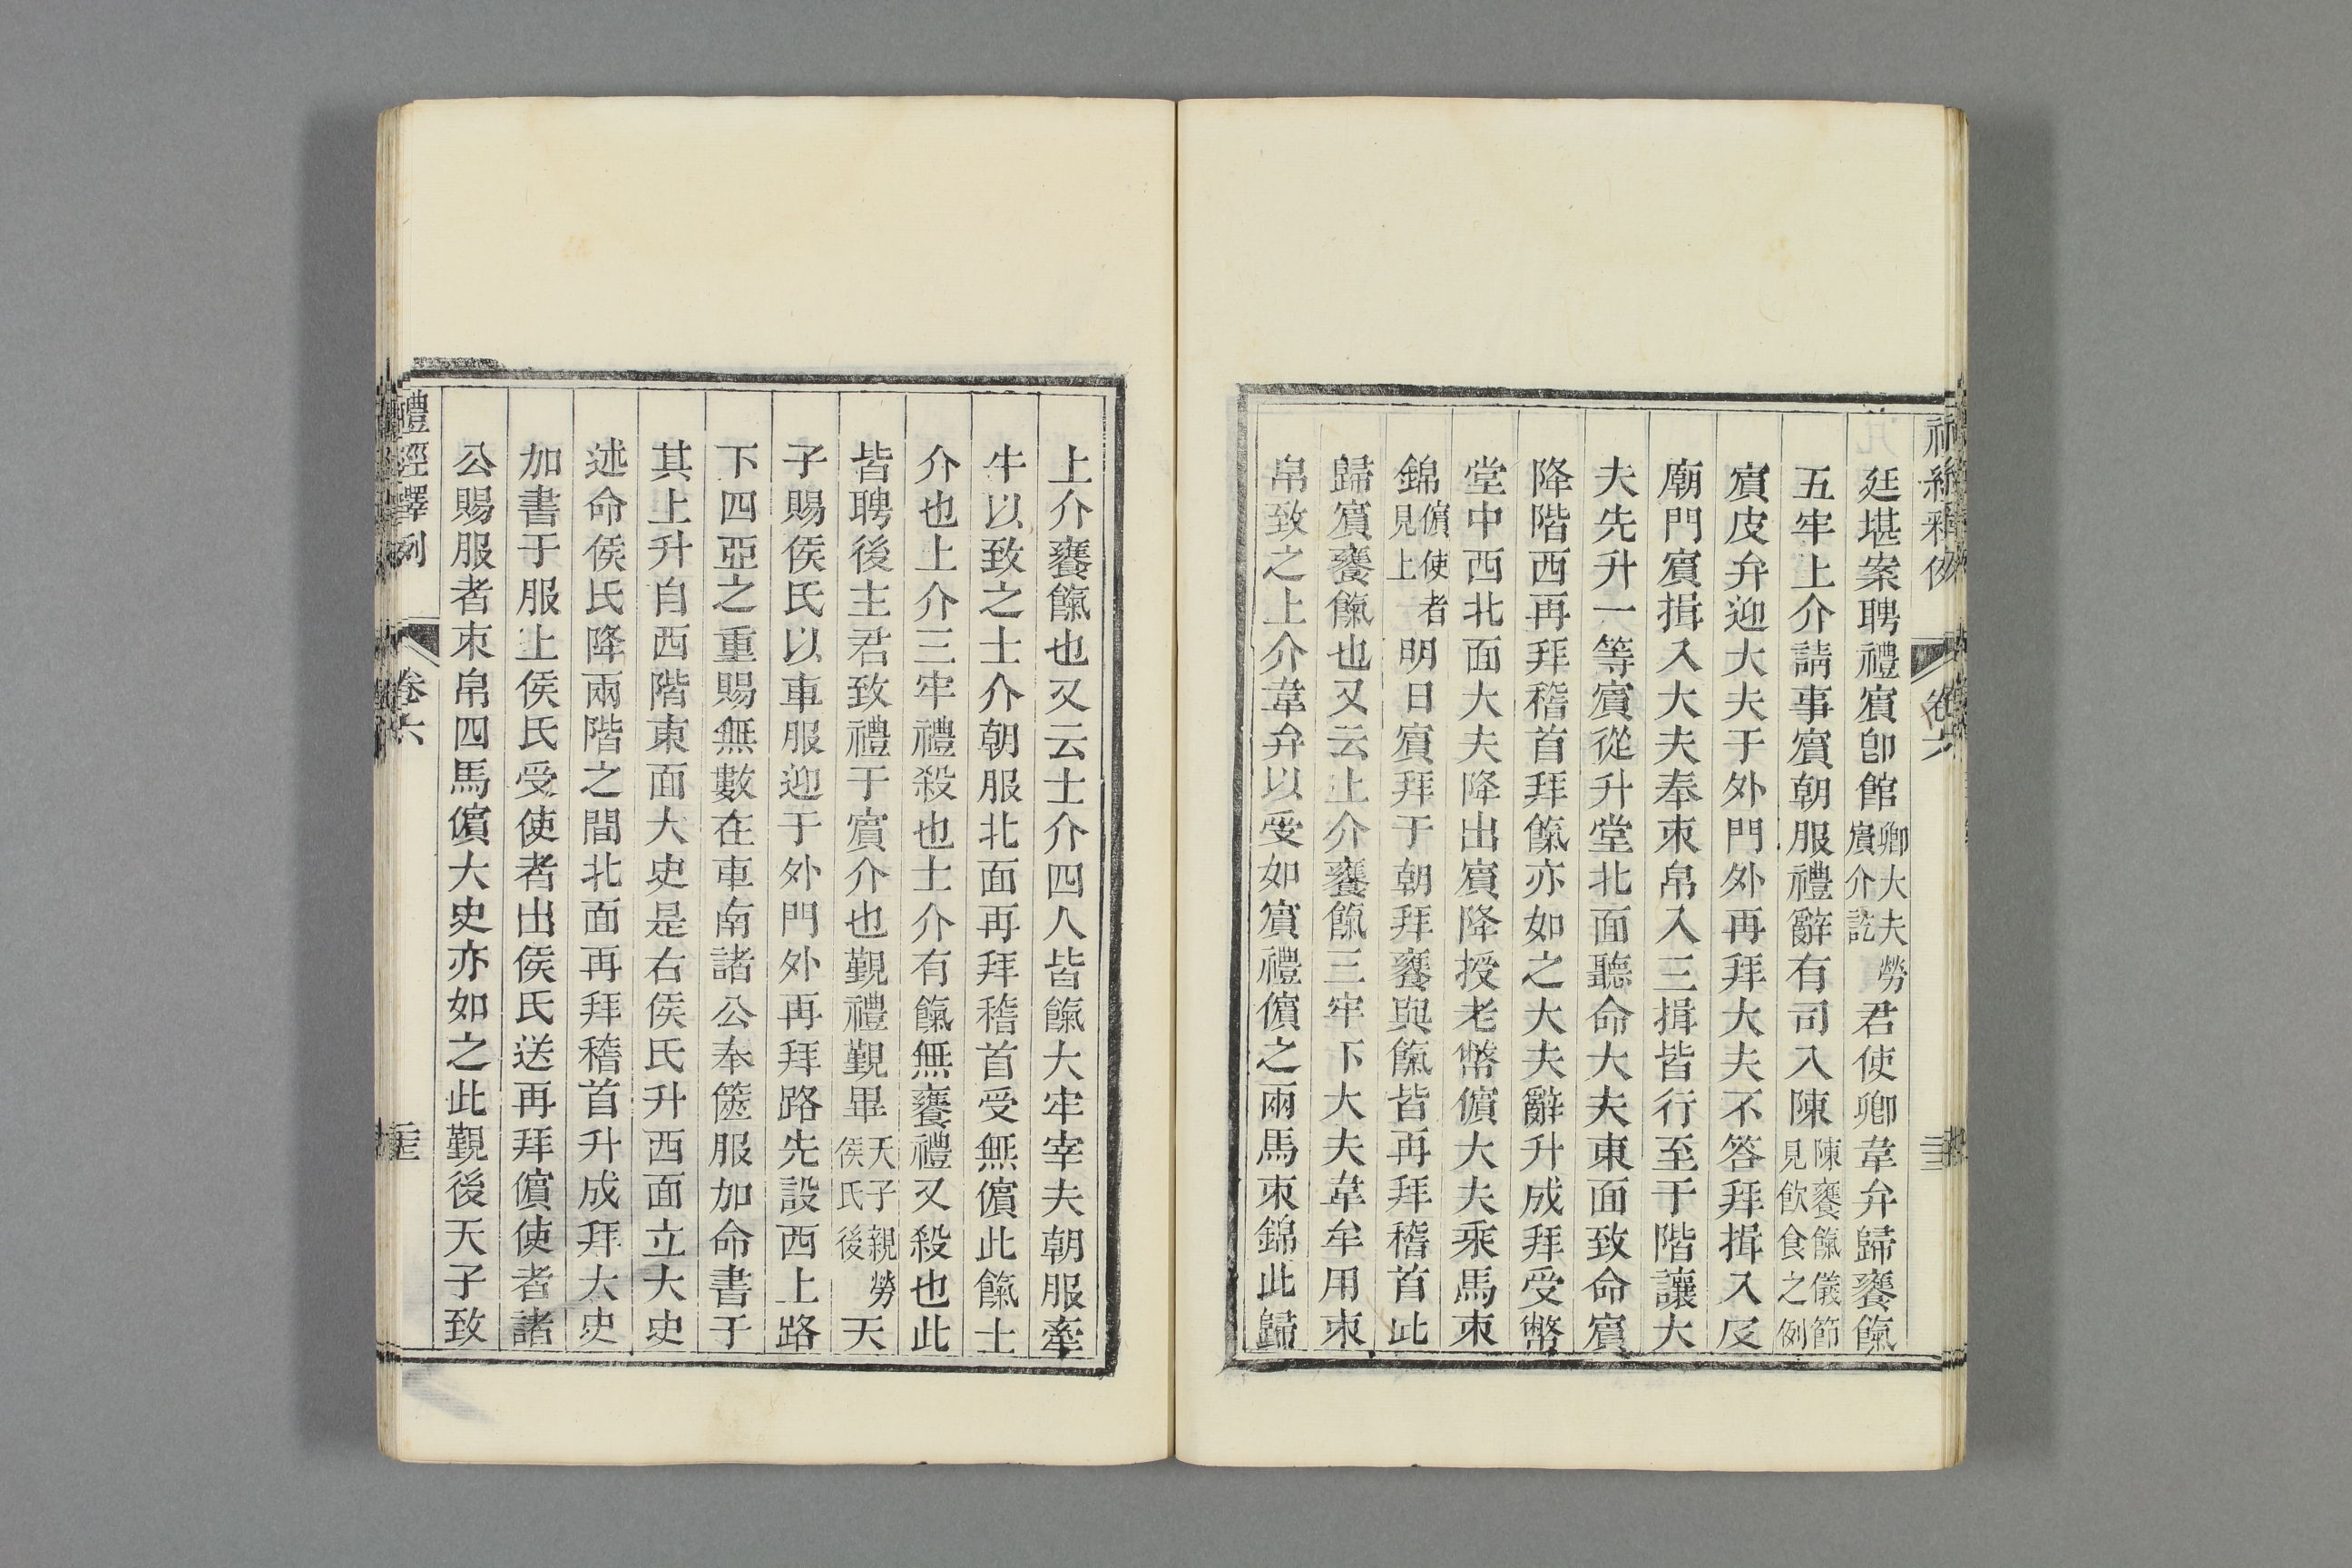 廷堪案聘禮賓卽館卿大夫勞賓介訖君使卿韋弁歸饔餼
五牢上介請事賓朝服禮辭有司入陳陳饔餼儀節見飲食之例
賓皮弁迎大夫于外門外再拜大夫不答拜揖入及
廟門賓揖入大夫奉束帛入三揖皆行至于階讓大
夫先升一等賓從升堂北面聽命大夫東面致命賓
降階西再拜稽首拜餼亦如之大夫辭升成拜受幣
堂中西北面大夫降出賓降授老幣儐大夫乘馬束
錦儐使者見上明日賓拜于朝拜饔與餼皆再拜稽首此
歸賓饔餼也又云上介饔餼三牢下大夫韋弁用束
帛致之上介韋弁以受如賓禮儐之兩馬束錦此歸
上介饔餼也又云士介四人皆餼大牢宰夫朝服牽
牛以致之士介朝服北面再拜稽首受無儐此餼士
介也上介三牢禮殺也士介有餼無饔禮又殺也此
皆聘後主君致禮于賓介也覲禮覲畢天子親勞侯氏後天
子賜侯氏以車服迎于外門外再拜路先設西上路
下四亞之重賜無數在車南諸公奉篋服加命書于
其上升自西階東面大史是右侯氏升西面立大史
述命侯氏降兩階之間北面再拜稽首升成拜大史
加書于服上侯氏受使者出侯氏送再拜儐使者諸
公賜服者束帛四馬儐大史亦如之此覲後天子致
禮經釋例
卷六